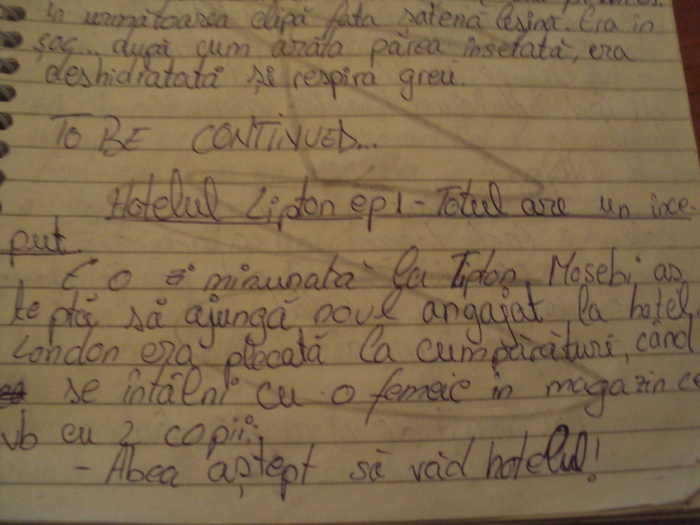 în următoarea clipă fata șatenă leșină. Era în
șoc... după cum arăta părea însetată, era
deshidratată și respira greu.
TO BE CONTINUED...
Hotelul Lipton ep1 - Totul are un ince-
put.
E o zi minunată la Tipton, Mosebi aș
teptă să ajungă noul angajat la hotel.
London era plecată la cumpărături, când
se întâlni cu o femeie în magazin ce
vb cu 2 copii:
- Abea aștept să văd hotelul!